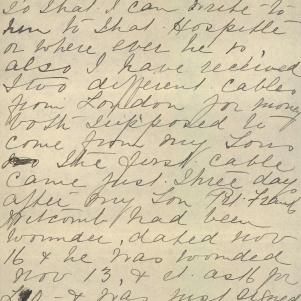 so that I can write to
him to that Hospitle
or where ever he is,
also I have received
two different cables
from London for money
both supposed to
come from my Son
The first cable
came just three day
after my Son Pvt Frank
Witcomb had been
wounder, dated Nov
16 & he was wounded
Nov 13, & it ask for
& was just signed